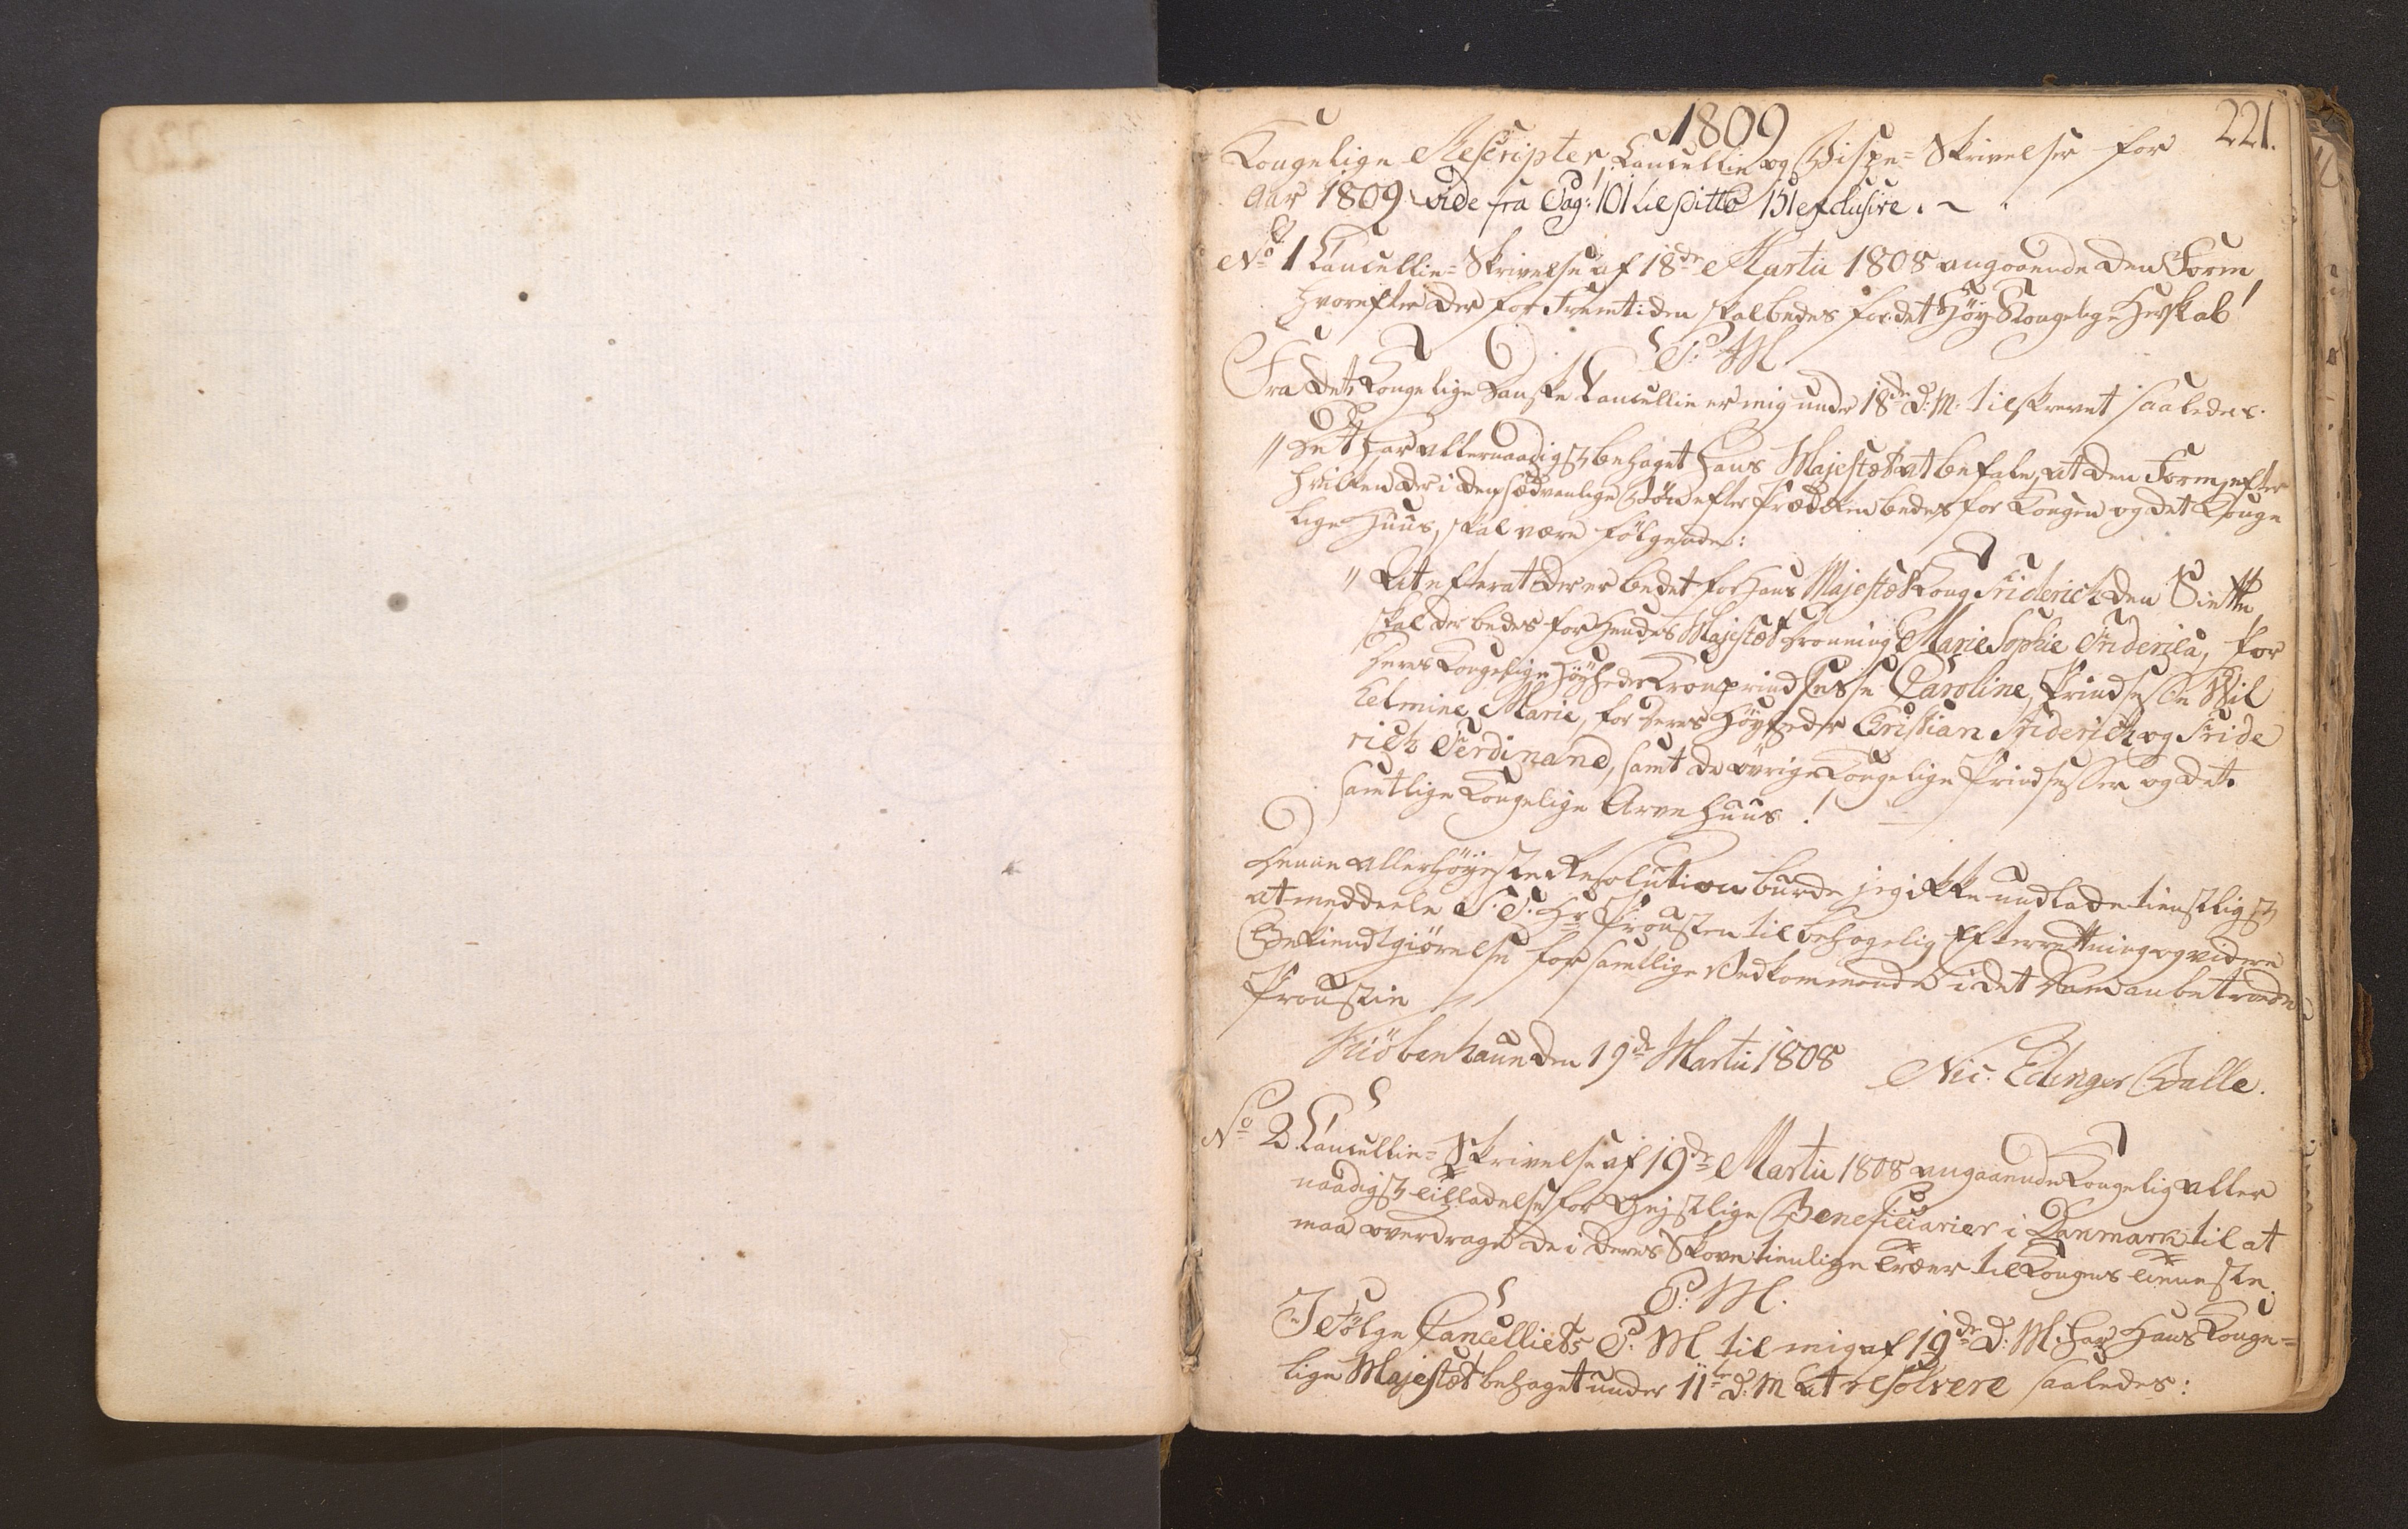 1809
221.
Kongelige Rescripter, Cancellie og Bispe=Skrivelser for
Aar 1809 vide fra Pag: 101 til ditto 151 exclusive. ~
No 1 Cancellie=Skrivelse af 18de Martii 1808 angaaende den Form,
hvorefter der for Fremtiden skal bedes for det Høy Kongelige Herskab!
P. M.
Fra det Kongelige Danske Cancellie er mig under 18de d: M: tilskrevet saaledes.
"Det har allernaadigst behaget Hans Majestæt at befale, at den Form, efter
hvilken der i den sædvanlige Bøn efter Prædiken bedes for Kongen og det Konge
lige Huus, skal være følgende:
"At efterat der er bedet for Hans Majestæt Kong Friderich den Siette,
skal der bedes for Hendes Majestæt Dronning Marie Sophie Friderica, for
Deres Kongelige Høyheder Kronprindsesse Caroline, Prindsesse Wil
helmine Marie, for Deres Høyheder Christian Friderich og Fride
rich Ferdinand, samt de øvrige Kongelige Prindsesser og det
samtlige Kongelige Arve Huus!
Denne allerhøyeste Resolution burde jeg ikke undlade tienstligst
at meddeele S. T. Hr Provsten til behagelig Efterretning og videre
Bekiendtgiørelse for samtlige Vedkommende i det Dem anbetroede
Provstie
Kiøbenhavn den 19de Martii 1808
Nic: Edinger Balle.
No 2 Cancellie=Skrivelse af 19de Martii 1808 angaaende Kongelig aller
naadigst Tilladelse for Gejstlige Beneficiarier i Danmark til at
maa overdrage de i deres Skove tienlige Træer til Kongens Tieneste.
P: M.
I Følge Cancelliets P. M til mig af 19de d: M. har Hans Konge=
lige Majestæt behaget under 11te d: M at resolvere saaledes: